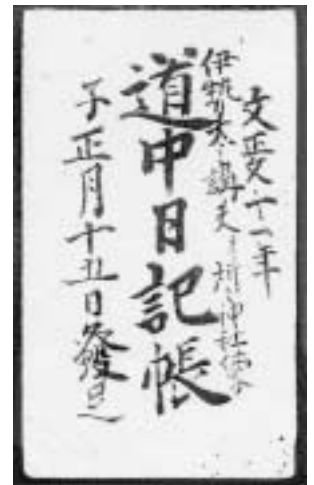 文政十一年
伊勢太々講 神社
道中日記帳
子正月十五日發